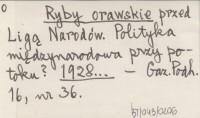 0
Ryby orawskie przed
Ligą Narodów. Polityka
międzynarodowa przy po-
toku? 1928... – Gaz. Podh.
16, nr 36.